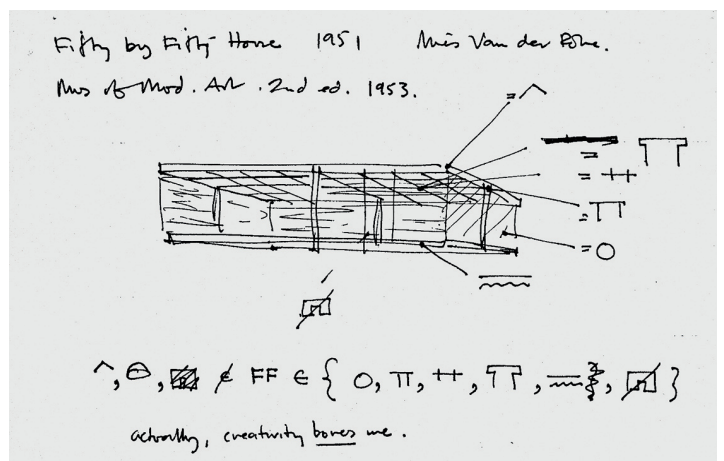 Fifty by Fifty House 1951 Mies Van der Rohe.
Mus of Mod. Art. 2nd ed. 1953.
= ^
=
= ++
= π
= O
^, ⊖, ∉ FF ∈ { O, π, ++, , , }
actually, creativity bores me.